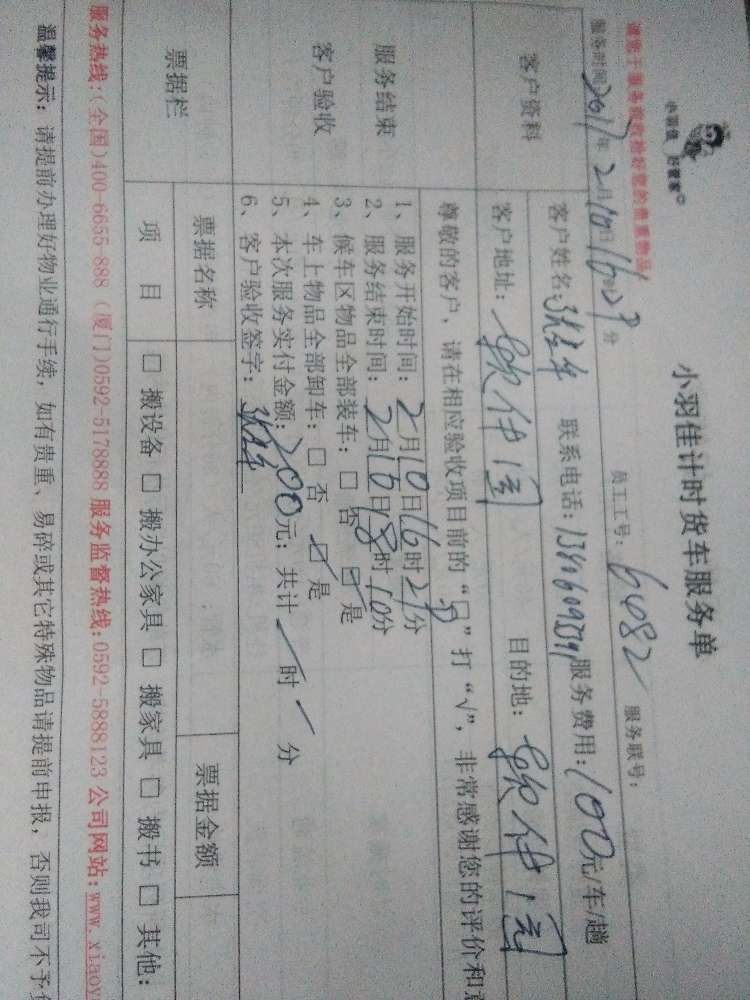 小羽佳 好管家
小羽佳计时货车服务单
请您于服务前收拾好您的贵重物品
服务时间 2017年2月10日16时29分 员工工号：6482 服务联号：
客户资料
客户姓名： 联系电话： 服务费用：100元/车/趟
客户地址： 目的地：
尊敬的客户，请在相应验收项目前的“口”打“√”，非常感谢您的评价和
服务结束
客户验收
1、服务开始时间：2月10日16时29分
2、服务结束时间：2月10日18时10分
3、候车区物品全部装车：□ 否 ☑ 是
4、车上物品全部卸车：□ 否 ☑ 是
5、本次服务实付金额：200元；共计 / 时 / 分
6、客户验收签字：
票据栏
票据名称 票据金额
项 目 □ 搬设备 □ 搬办公家具 □ 搬家具 □ 搬书 □ 其他：
服务热线：(全国)400-6655-888 (厦门)0592-5178888 服务监督热线：0592-5888123 公司网站：www.xiaoy
温馨提示：请提前办理好物业通行手续，如有贵重、易碎或其它特殊物品请提前申报，否则我司不予